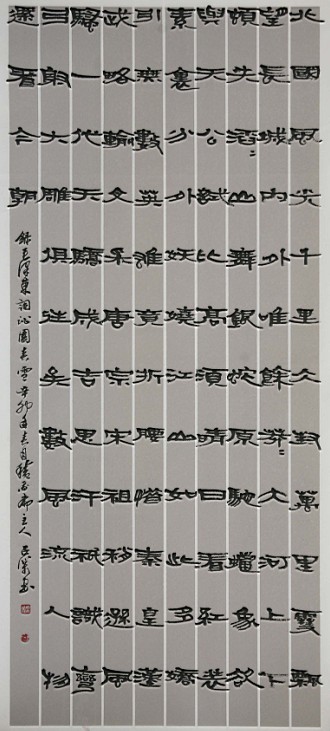 北國風光千里冰封萬里雪飄
望長城內外唯餘莽〻大河上下
頓失滔〻山舞銀蛇原馳蠟象欲
與天公試比高須晴日看紅裝
素裹分外妖嬈江山如此多嬌
引無數英雄竟折腰惜秦皇漢
武略輸文采唐宗宋祖稍遜風
騷一代天驕成吉思汗祇識彎
弓射大雕俱往矣數風流人物
還看今朝
錄毛澤東詞沁園春雪辛卯年春月 主人